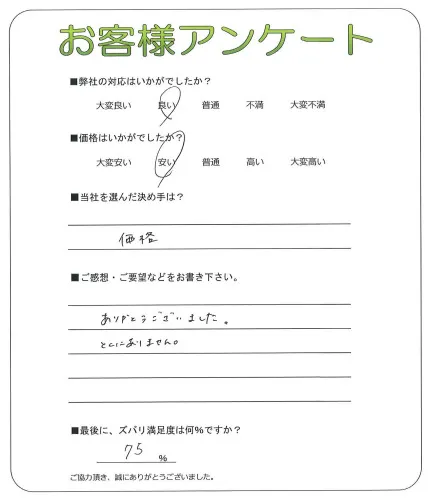 お客様アンケート
■弊社の対応はいかがでしたか？
大変良い 良い 普通 不満 大変不満
■価格はいかがでしたか？
大変安い 安い 普通 高い 大変高い
■当社を選んだ決め手は？
価格
■ご感想・ご要望などをお書き下さい。
ありがとうございました。
とくにありません。
■最後に、ズバリ満足度は何%ですか？
75 %
ご協力頂き、誠にありがとうございました。